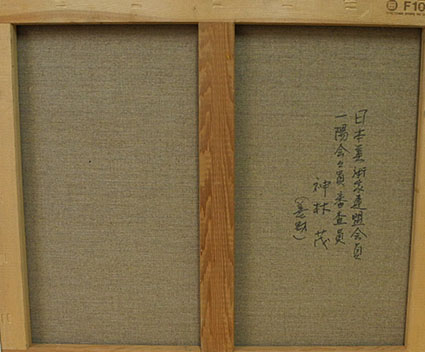 F10
日本美術家連盟会員
一陽会々員審査員
神林 茂